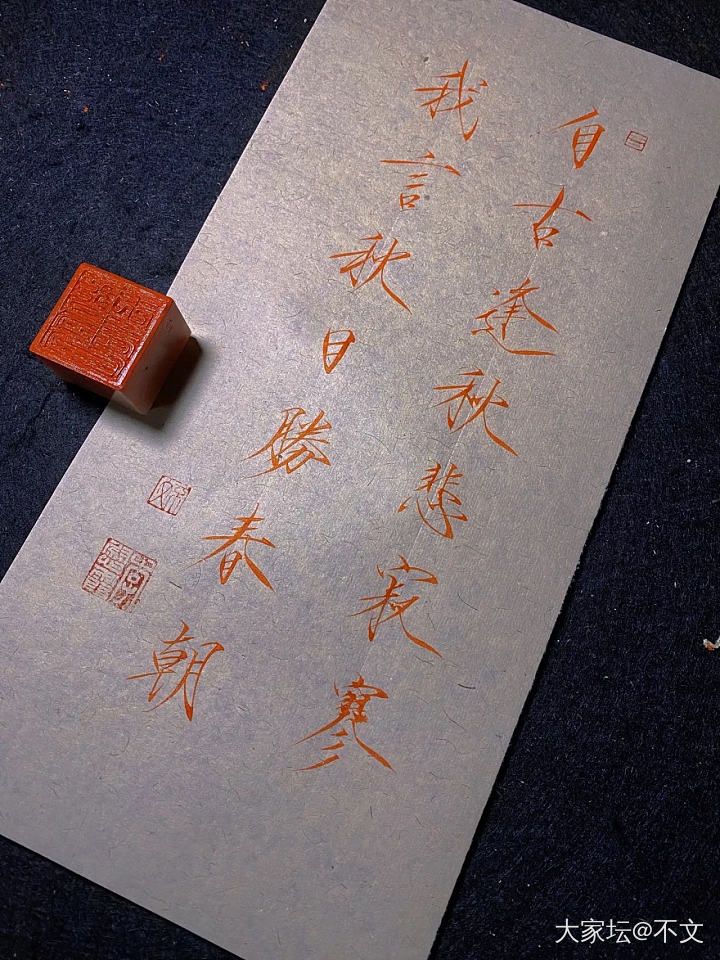 自古逢秋悲寂寥
我言秋日勝春朝
大家坛@不文